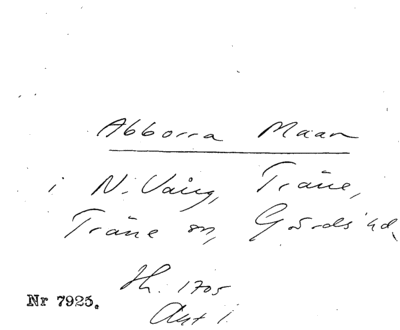 Abborra Maan
i N. Vång, Träne,
Träne sn, Gärds hd
Hh. 1705
Akt 1.
Nr 7925.